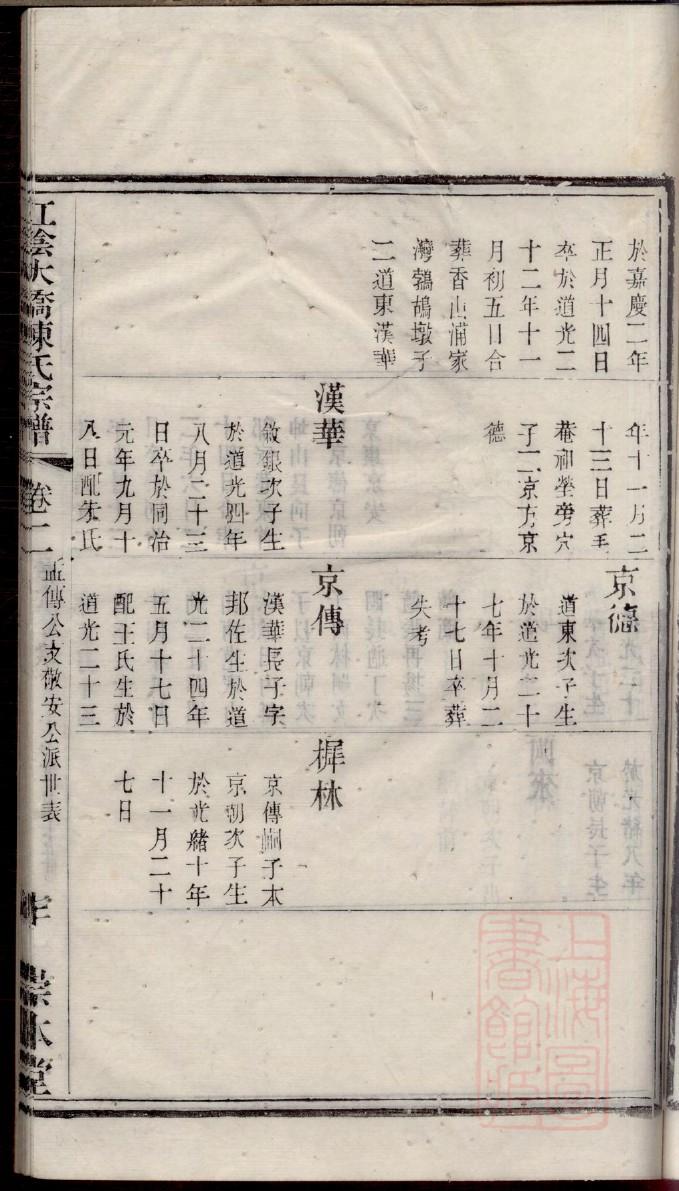 於嘉慶二年
正月十四日
卒於道光二
十二年十一
月初五日合
葬香山浦家
灣鵓鴣墩子
二道東漢華
年十一月二
十三日葬毛
菴祖塋旁穴
子二京方京
德
漢華
敘銀次子生
於道光四年
八月二十三
日卒於同治
元年九月十
八日配朱氏
京德
道東次子生
於道光二十
七年十月二
十七日卒葬
失考
京傳
漢華長子字
邦佐生於道
光二十四年
五月十七日
配王氏生於
道光二十三
樨林
京傳嗣子本
京朝次子生
於光緒十年
十一月二十
七日
江陰大橋陳氏宗譜
卷二
孟傳公支敬安公派世表
崇本堂
上海圖書館藏